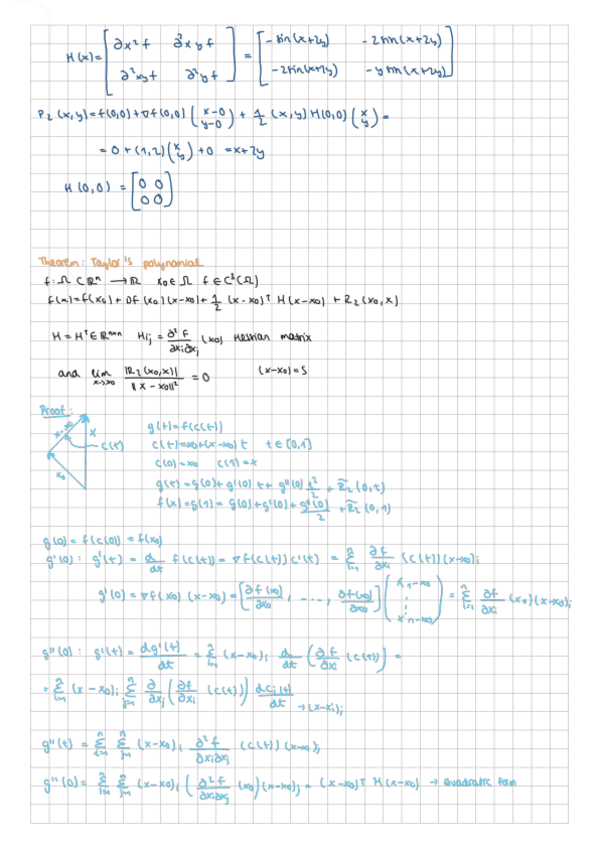 H(x)= [ ∂x²f ∂²xyf ; ∂²xyf ∂²yf ] = [ -sin(x+2y) -2sin(x+2y) ; -2sin(x+2y) -4sin(x+2y) ]
P₂(x,y)=f(0,0)+∇f(0,0)(x-0 ; y-0) + 1/2 (x,y) H(0,0) (x ; y) =
= 0+(1,2)(x ; y)+0 =x+2y
H(0,0) = [ 0 0 ; 0 0 ]
Theorem: Taylor's polynomial
f: Ω ⊂ ℝⁿ → ℝ x₀ ∈ Ω f ∈ C²(Ω)
f(x)=f(x₀)+Df(x₀)(x-x₀)+ 1/2 (x-x₀)ᵀ H(x-x₀) + R₂(x₀,x)
H=Hᵀ∈ℝⁿˣⁿ Hij = ∂²f/∂xi∂xj (x₀) Hessian matrix
and lim x→x₀ |R₂(x₀,x)| / ||x-x₀||² = 0 (x-x₀)=S
Proof:
g(t)=f(c(t))
x
c(t)
x₀
c(t)=x₀+(x-x₀)t t∈[0,1]
c(0)=x₀ c(1)=x
g(t)=g(0)+g'(0)t+g''(0) t²/2 + R̃₂(0,t)
f(x)=g(1)= g(0)+g'(0)+ g''(0)/2 +R̃₂(0,1)
g(0)=f(c(0))=f(x₀)
g'(0): g'(t)= d/dt f(c(t))=∇f(c(t))c'(t) = Σⁿi=1 ∂f/∂xi (c(t))(x-x₀)i
g'(0)=∇f(x₀)(x-x₀)=[ ∂f(x₀)/∂x₀ , ..., ∂f(x₀)/∂x₀ ] ( x1-x₀ ; ⋮ ; xn-x₀ ) = Σⁿi=1 ∂f/∂xi (x₀)(x-x₀)i
g''(0): g'(t)= dg'(t)/dt = Σⁿi=1 (x-x₀)i d/dt ( ∂f/∂xi (c(t)) ) =
= Σⁿi=1 (x-x₀)i Σⁿj=1 ∂/∂xj ( ∂f/∂xi (c(t)) ) dcj(t)/dt →(x-xi)j
g''(t)= Σⁿi=1 Σⁿj=1 (x-x₀)i ∂²f/∂xi∂xj (c(t))(x-x₀)j
g''(0)= Σⁿi=1 Σⁿj=1 (x-x₀)i ( ∂²f/∂xi∂xj (x₀)(x-x₀)j = (x-x₀)ᵀ H(x-x₀) → quadratic form